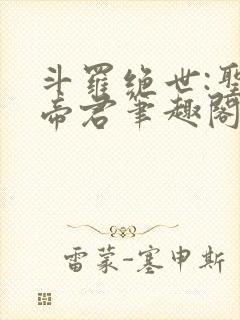 斗羅绝世:聖
帝君筆趣閣
雷蒙-塞申斯